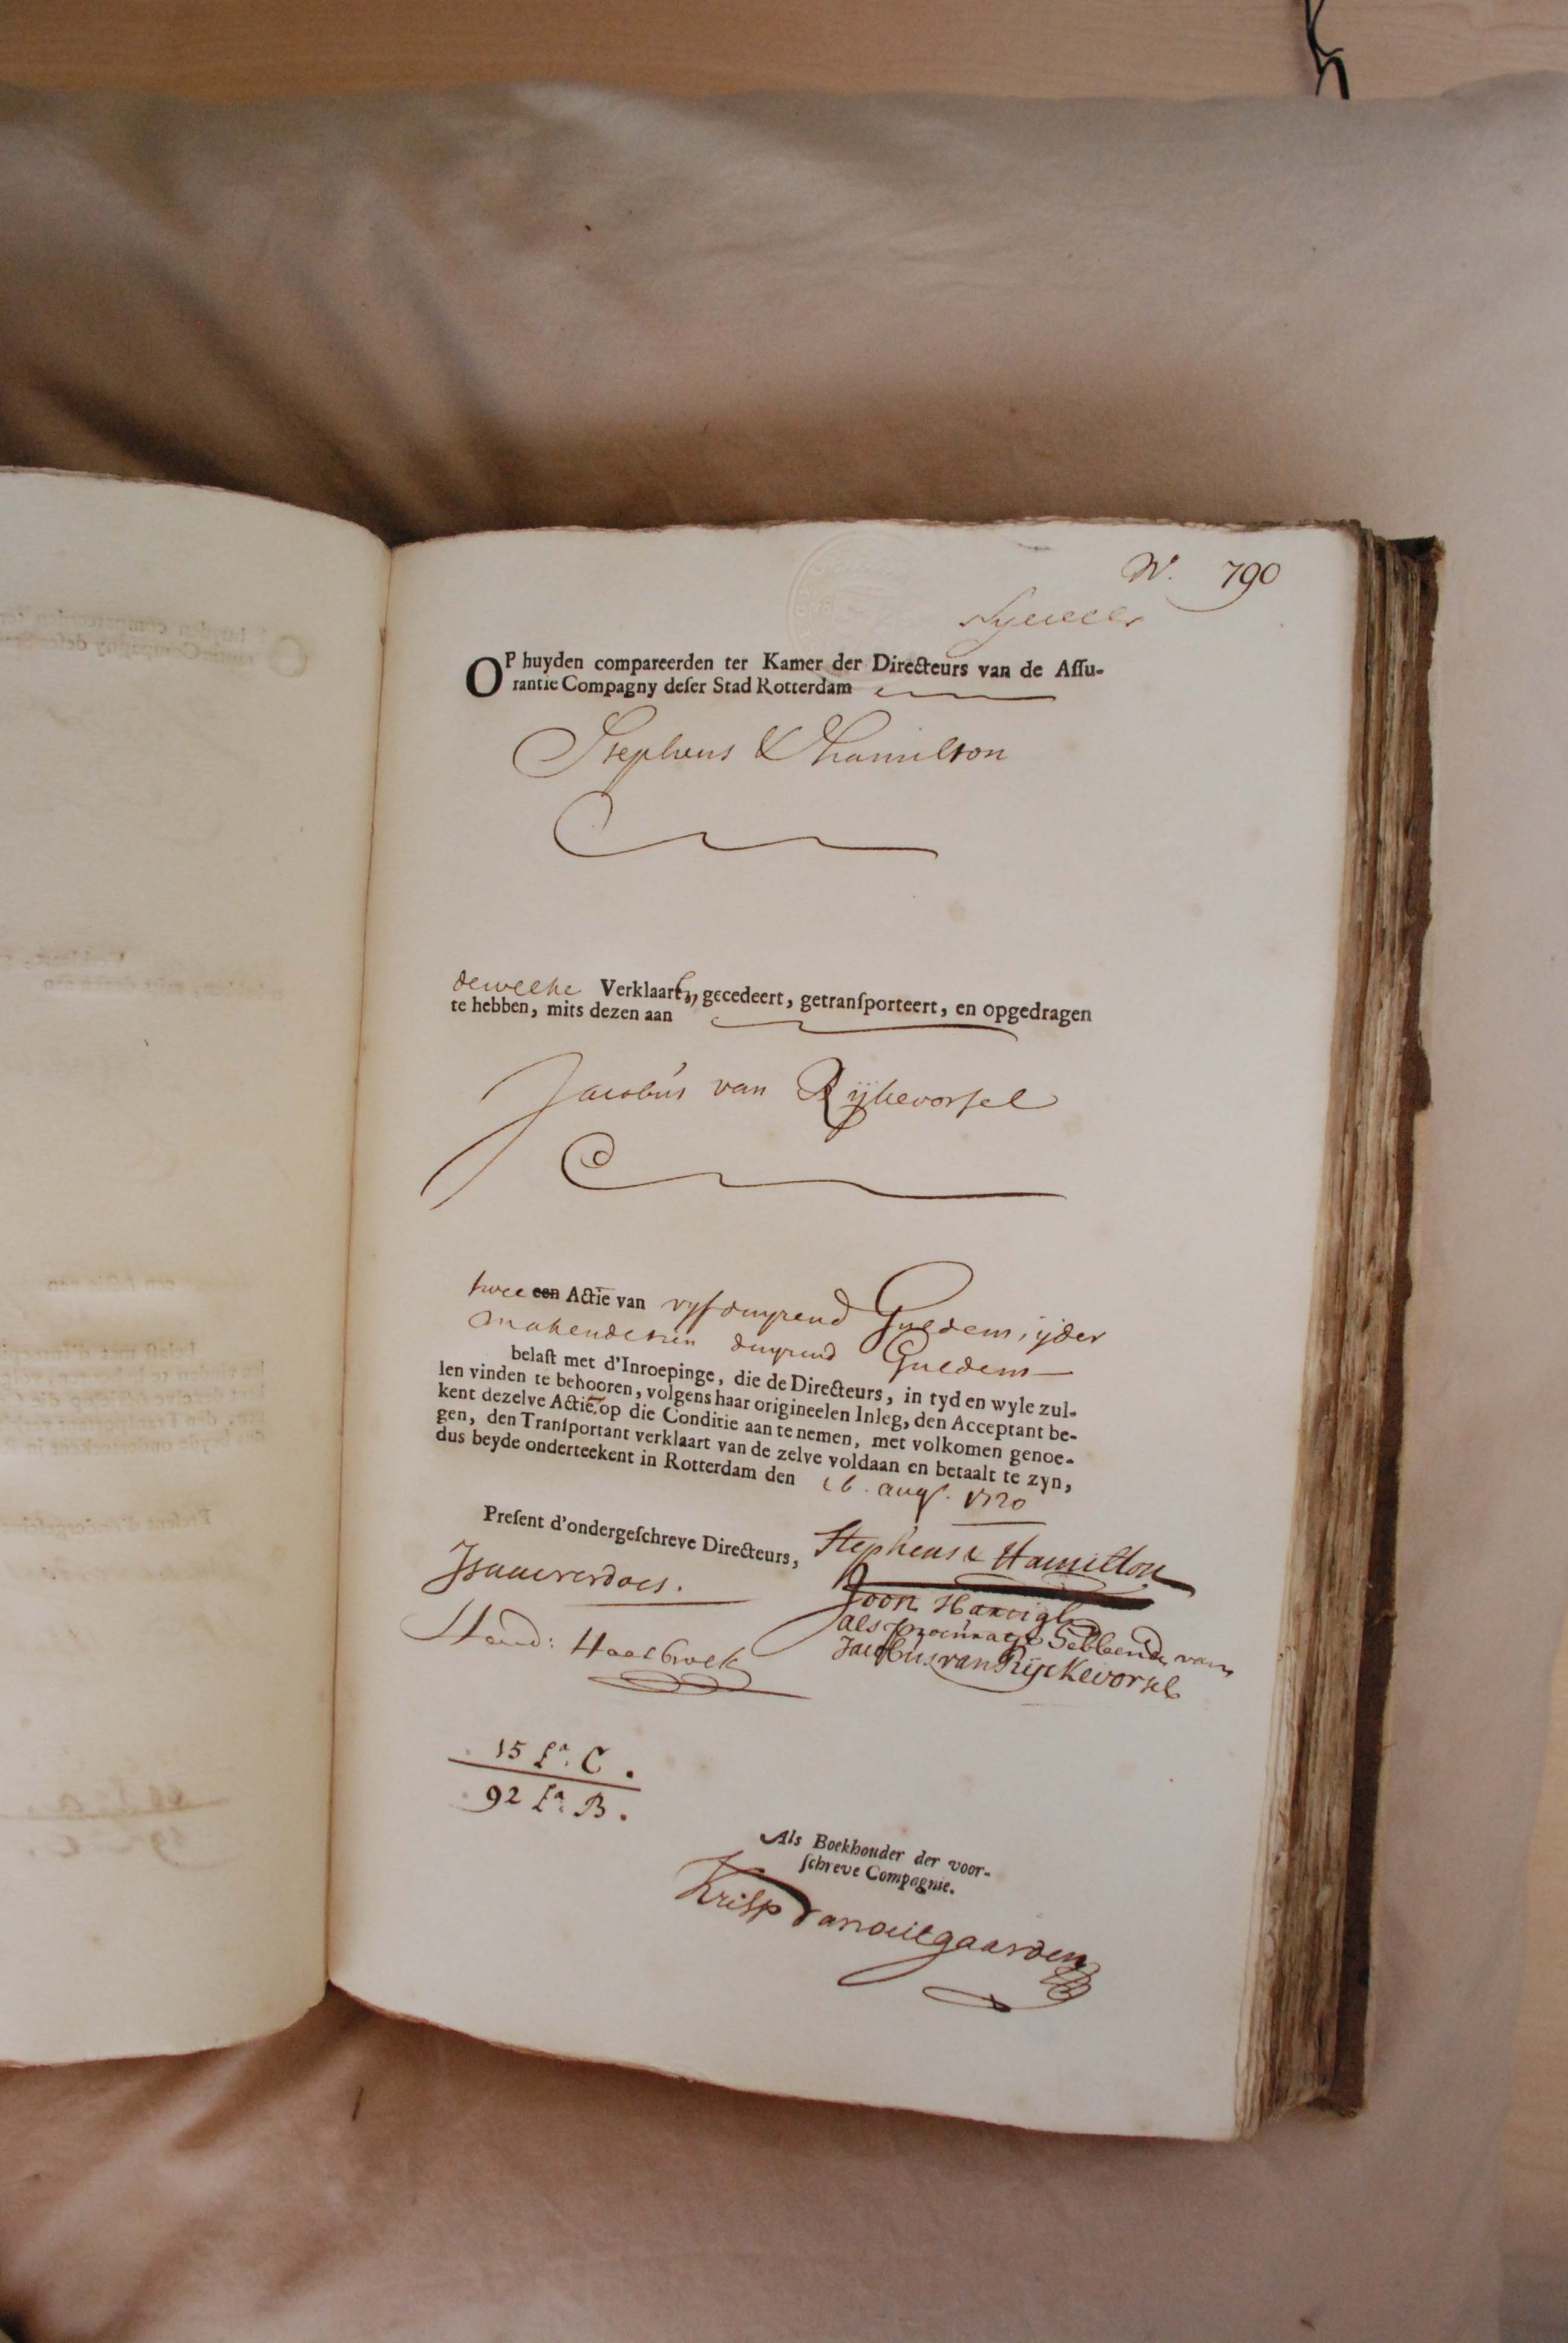 N. 790
OP huyden compareerden ter Kamer der Directeurs van de Aſſu-
rantie Compagny deſer Stad Rotterdam
Stephens & Hamilton
dewelke Verklaaren gecedeert, getranſporteert, en opgedragen
te hebben, mits dezen aan
Jacobus van Rijkevorsel
twee een Actie van vyfduysend Guldens, ijder
makende tien duysend Guldens
belaſt met d'Inroepinge, die de Directeurs, in tyd en wyle zul-
len vinden te behooren, volgens haar origineelen Inleg, den Acceptant be-
kent dezelve Actie op die Conditie aan te nemen, met volkomen genoe-
gen, den Tranſportant verklaart van de zelve voldaan en betaalt te zyn,
dus beyde onderteekent in Rotterdam den 16. augs. 1720
Preſent d'ondergeſchreve Directeurs,
Stephens & Hamilton
Isaac verdoes.
Joon Hartigh
als procuratie hebbende van
Jacobus van Rijckevorsel
Hend: Haesbroek
15 La. C.
92 La. B.
Als Boekhouder der voor-
ſchreve Compagnie.
Krisp Vanoutgaarden